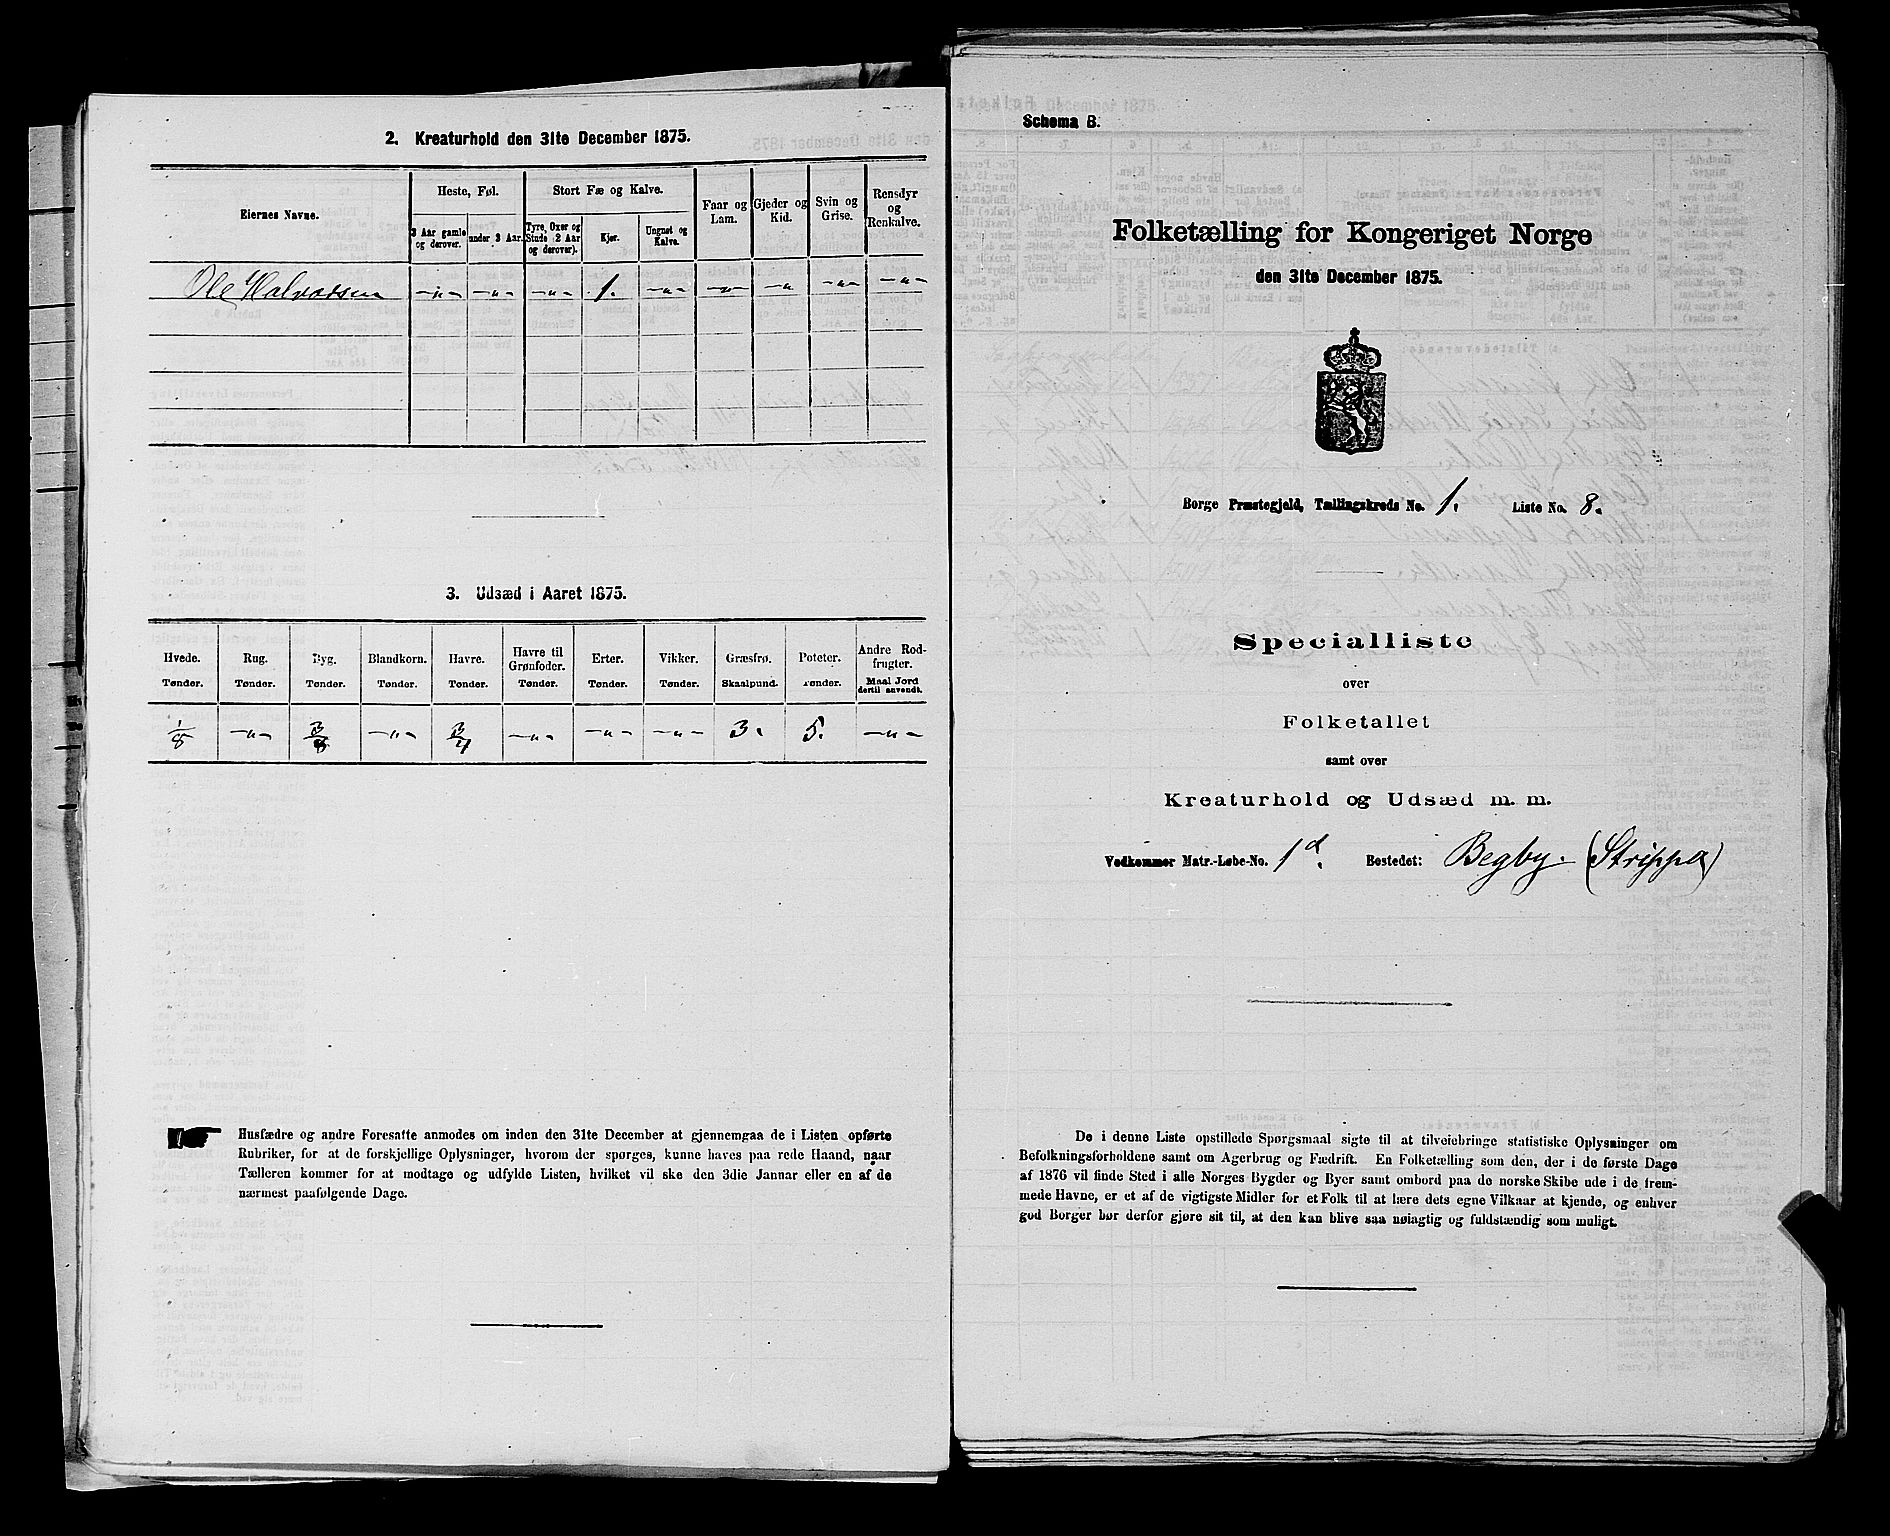 2. Kreaturhold den 31te December 1875.
Eiernes Navne.
Heste, Føl.
3 Aar gamle og derover.
under 3 Aar.
Stort Fæ og Kalve.
Tyre, Oxer og Stude (2 Aar og derover).
Kjør.
Ungnøt og Kalve.
Faar og Lam.
Gjeder og Kid.
Svin og Grise.
Rensdyr og Renkalve.
Ole Halvorsen -"- -"- -"- 1. -"- -"- -"- -"- -"-
3. Udsæd i Aaret 1875.
Hvede. Rug. Byg. Blandkorn. Havre. Havre til Grønfoder. Erter. Vikker. Græsfrø. Poteter. Andre Rodfrugter.
Tønder. Tønder. Tønder. Tønder. Tønder. Tønder. Tønder. Tønder. Skaalpund. Tønder. Maal Jord dertil anvendt.
1/8 -"- 3/8 -"- 3/4 -"- -"- -"- 3. 5. -"-
Husfædre og andre Foresatte anmodes om inden den 31te December at gjennemgaa de i Listen opførte
Rubriker, for at de forskjellige Oplysninger, hvorom der spørges, kunne haves paa rede Haand, naar
Tælleren kommer for at modtage og udfylde Listen, hvilket vil ske den 3die Januar eller en af de
nærmest paafølgende Dage.
Schema B.
Folketælling for Kongeriget Norge
den 31te December 1875.
Borge Præstegjeld, Tællingskreds No. 1. Liste No. 8.
Specialliste
over
Folketallet
samt over
Kreaturhold og Udsæd m. m.
Vedkommer Matr.-Løbe-No. 1d. Bostedet: Begby. (Strippa)
De i denne Liste opstillede Spørgsmaal sigte til at tilveiebringe statistiske Oplysninger om
Befolkningsforholdene samt om Agerbrug og Fædrift. En Folketælling som den, der i de første Dage
af 1876 vil finde Sted i alle Norges Bygder og Byer samt ombord paa de norske Skibe ude i de frem-
mede Havne, er et af de vigtigste Midler for et Folk til at lære dets egne Vilkaar at kjende, og enhver
god Borger bør derfor gjøre sit til, at den kan blive saa nøiagtig og fuldstændig som muligt.